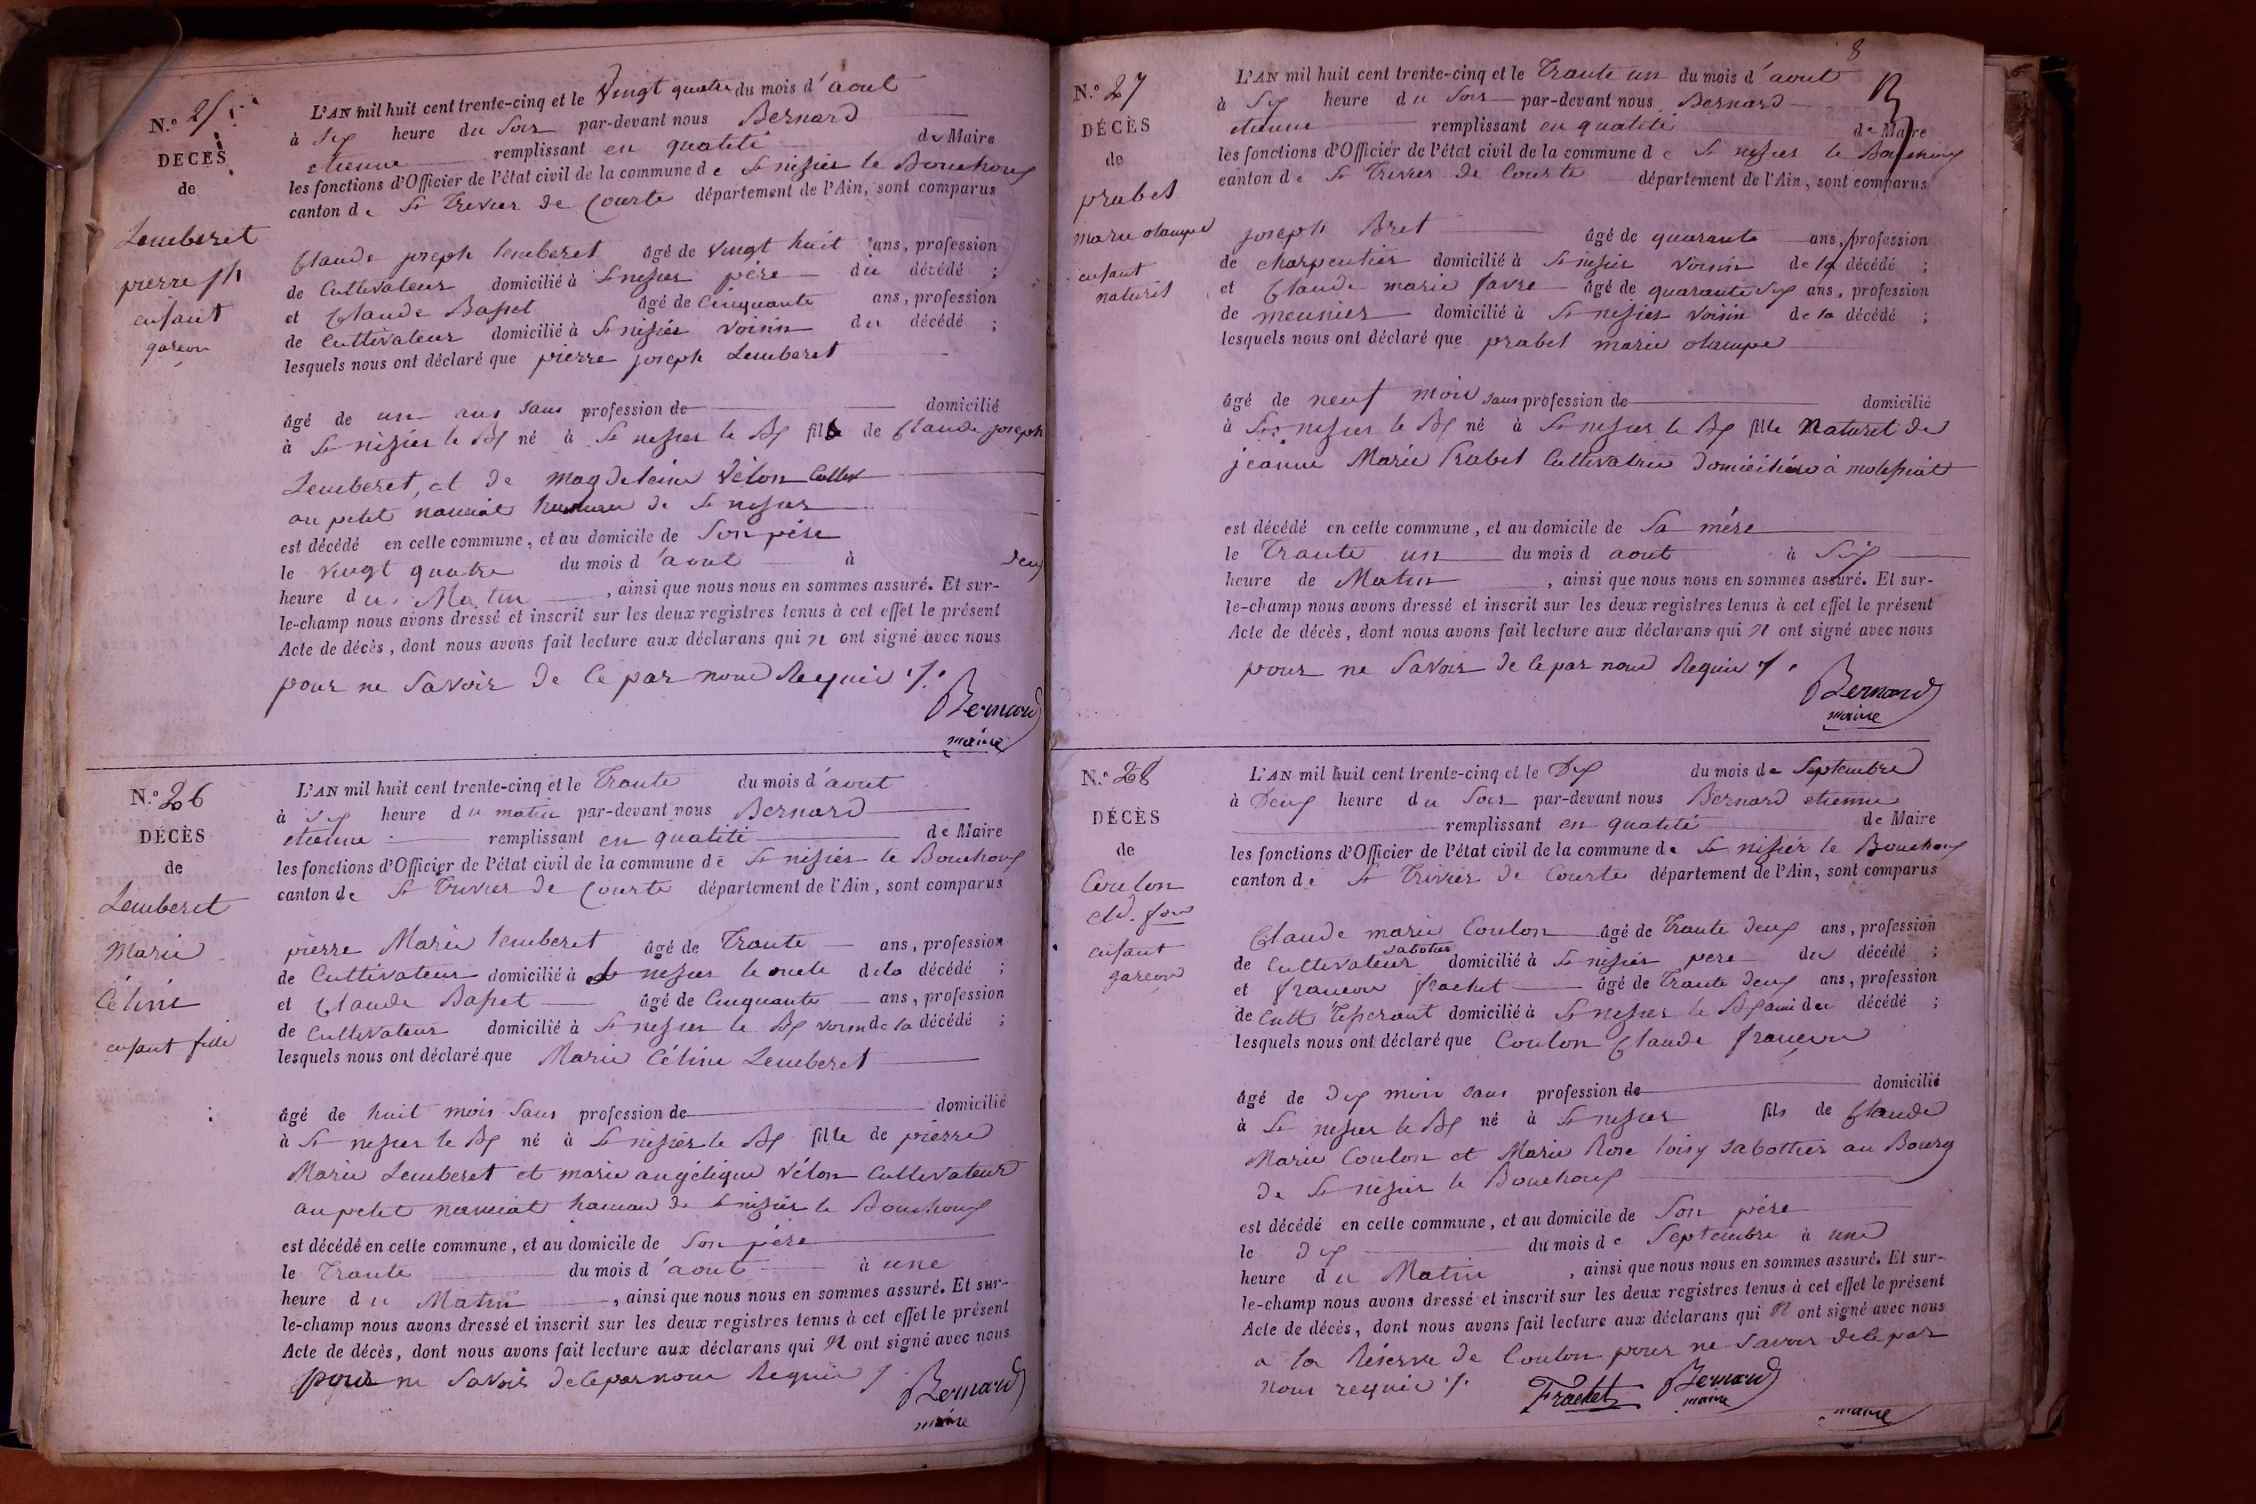 N.o 25
DÉCÈS
de
Lemberet
pierre jh
enfant
garcon
L'AN mil huit cent trente-cinq et le Vingt quatre du mois d'aout
à Six heure du Soir par-devant nous Bernard
etienne remplissant en qualité de Maire
les fonctions d'Officier de l'état civil de la commune de St nisier le Bouchoux
canton de St Trivier de Courte département de l'Ain, sont comparus
Claude joseph lemberet âgé de vingt huit ans, profession
de Cultivateur domicilié à St nisier père du décédé ;
et Claude Basset âgé de Cinquante ans, profession
de Cultivateur domicilié à St nisier voisin du décédé ;
lesquels nous ont déclaré que pierre joseph Lemberet
âgé de un ans sans profession de domicilié
à St nisier le Bx né à St nisier le Bx fils de Claude joseph
Lemberet, et de magdeleine Vélon Cultivr
au petit nanciat hameau de St nisier
est décédé en celle commune, et au domicile de Son père
le vingt quatre du mois d'aout à deux
heure du Matin , ainsi que nous nous en sommes assuré. Et sur-
le-champ nous avons dressé et inscrit sur les deux registres tenus à cet effet le présent
Acte de décès, dont nous avons fait lecture aux déclarans qui n ont signé avec nous
pour ne Savoir de Ce par nous Requis ./.
Bernard
maire
N.o 26
DÉCÈS
de
Lemberet
Marie
Céline
enfant fille
L'AN mil huit cent trente-cinq et le Trante du mois d'aout
à Six heure du matin par-devant nous Bernard
etienne remplissant en qualité de Maire
les fonctions d'Officier de l'état civil de la commune de St nisier le Bouchoux
canton de St Trivier de Courte département de l'Ain, sont comparus
pierre Marie lemberet âgé de Trante ans, profession
de Cultivateur domicilié à St nisier le oncle dela décédé ;
et Claude Basset âgé de Cinquante ans, profession
de Cultivateur domicilié à St nisier le Bx voisin de la décédé ;
lesquels nous ont déclaré que Marie Céline Lemberet
âgé de huit mois Sans profession de domicilié
à St nisier le Bx né à St nisier le Bx fille de pierre
Marie Lemberet et marie angélique Vélon Cultivateur
au petit nanciat hameau de St nisier le Bouchoux
est décédé en celle commune, et au domicile de Son père
le Trante du mois d'aout à une
heure du Matin , ainsi que nous nous en sommes assuré. Et sur-
le-champ nous avons dressé et inscrit sur les deux registres tenus à cet effet le présent
Acte de décès, dont nous avons fait lecture aux déclarans qui n ont signé avec nous
pour ne Savoir de Ce par nous Requis /
Bernard
maire
8
N.o 27
DÉCÈS
de
prabel
marie olampe
enfant
naturel
L'AN mil huit cent trente-cinq et le Trante un du mois d'aout
à Six heure du Soir par-devant nous Bernard
etienne remplissant en qualité de Maire
les fonctions d'Officier de l'état civil de la commune de St nisier le Bouchoux
canton de St Trivier de Courte département de l'Ain, sont comparus
joseph Bret âgé de quarante ans, profession
de charpentier domicilié à St nisier voisin de la décédé ;
et Claude marie favre âgé de quarante Six ans, profession
de meunier domicilié à St nisier voisin de la décédé ;
lesquels nous ont déclaré que prabel marie olampe
âgé de neuf mois sans profession de domicilié
à St nisier le Bx né à St nisier le Bx fille Naturel de
jeanne Marie Prabel Cultivatrice domiciliée à
est décédé en celle commune, et au domicile de Sa mère
le Trante un du mois d aout à Six
heure de Matin , ainsi que nous nous en sommes assuré. Et sur-
le-champ nous avons dressé et inscrit sur les deux registres tenus à cet effet le présent
Acte de décès, dont nous avons fait lecture aux déclarans qui n ont signé avec nous
pour ne Savoir de Ce par nous Requis ./.
Bernard
maire
N.o 28
DÉCÈS
de
Coulon
Cld. fois
enfant
garcon
L'AN mil huit cent trente-cinq et le Dix du mois de Septembre
à Deux heure du Soir par-devant nous Bernard etienne
remplissant en qualité de Maire
les fonctions d'Officier de l'état civil de la commune de St nisier le Bouchoux
canton de St Trivier de Courte département de l'Ain, sont comparus
Claude marie Coulon âgé de Trante deux ans, profession
sabotier
de Cultivateur domicilié à St nisier pere du décédé ;
et francois frachet âgé de Trante deux ans, profession
de Cult domicilié à St nisier le Bx ami du décédé ;
lesquels nous ont déclaré que Coulon Claude francois
âgé de dix mois sans profession de domicilié
à St nisier le Bx né à St nisier fils de Claude
Marie Coulon et Marie Rose loisy Sabottier au Bourg
de St nisier le Bouchoux
est décédé en celle commune, et au domicile de Son père
le dix du mois de Septembre à une
heure du Matin , ainsi que nous nous en sommes assuré. Et sur-
le-champ nous avons dressé et inscrit sur les deux registres tenus à cet effet le présent
Acte de décès, dont nous avons fait lecture aux déclarans qui n ont signé avec nous
a la Réserve de Coulon pour ne Savoir de Ce par
nous requis ./.
Frachet Bernard
maire
maire